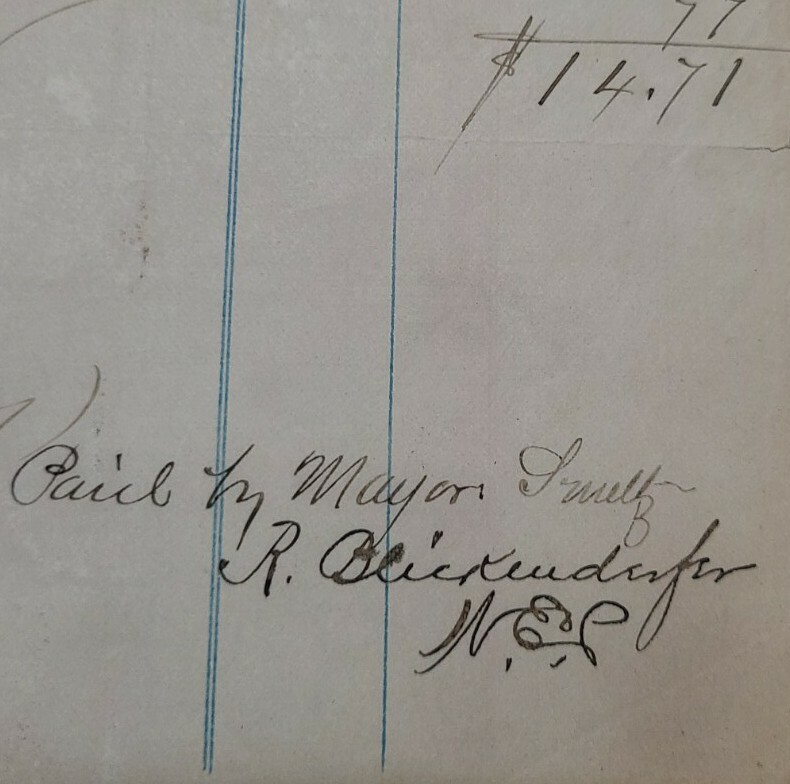 77
$14.71
Paid by Mayor Smeltz
R. Blickenderfer
W.E.S